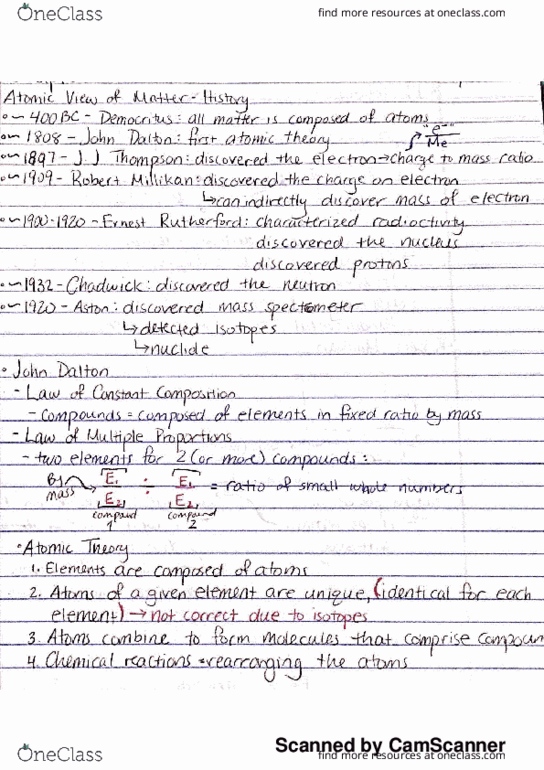 OneClass
find more resources at oneclass.com
Atomic View of Matter - History
~ 400 BC - Democritus: all matter is composed of atoms
~ 1808 - John Dalton: first atomic theory
"e-"
Me
~ 1897 - J.J Thompson: discovered the electron → charge to mass ratio
~ 1909 - Robert Millikan: discovered the charge on electron
↳ can indirectly discover mass of electron
~ 1900-1920 - Ernest Rutherford: characterized radioctivity
discovered the nucleus
discovered protons
~ 1932 - Chadwick: discovered the neutron
~ 1920 - Aston: discovered mass spectometer
↳ detected isotopes
↳ nuclide
• John Dalton
- Law of Constant Composition
- compounds = composed of elements in fixed ratio by mass
- Law of Multiple Proportions
- two elements for 2 (or more) compounds:
By mass → E1 ÷ E1 = ratio of small whole numbers
E2 E2
compound compound
1 2
• Atomic Theory
1. Elements are composed of atoms
2. Atoms of a given element are unique, (identical for each
element) → not correct due to isotopes
3. Atoms combine to form molecules that comprise compoun
4. Chemical reactions = rearranging the atoms
Scanned by CamScanner
OneClass
find more resources at oneclass.com